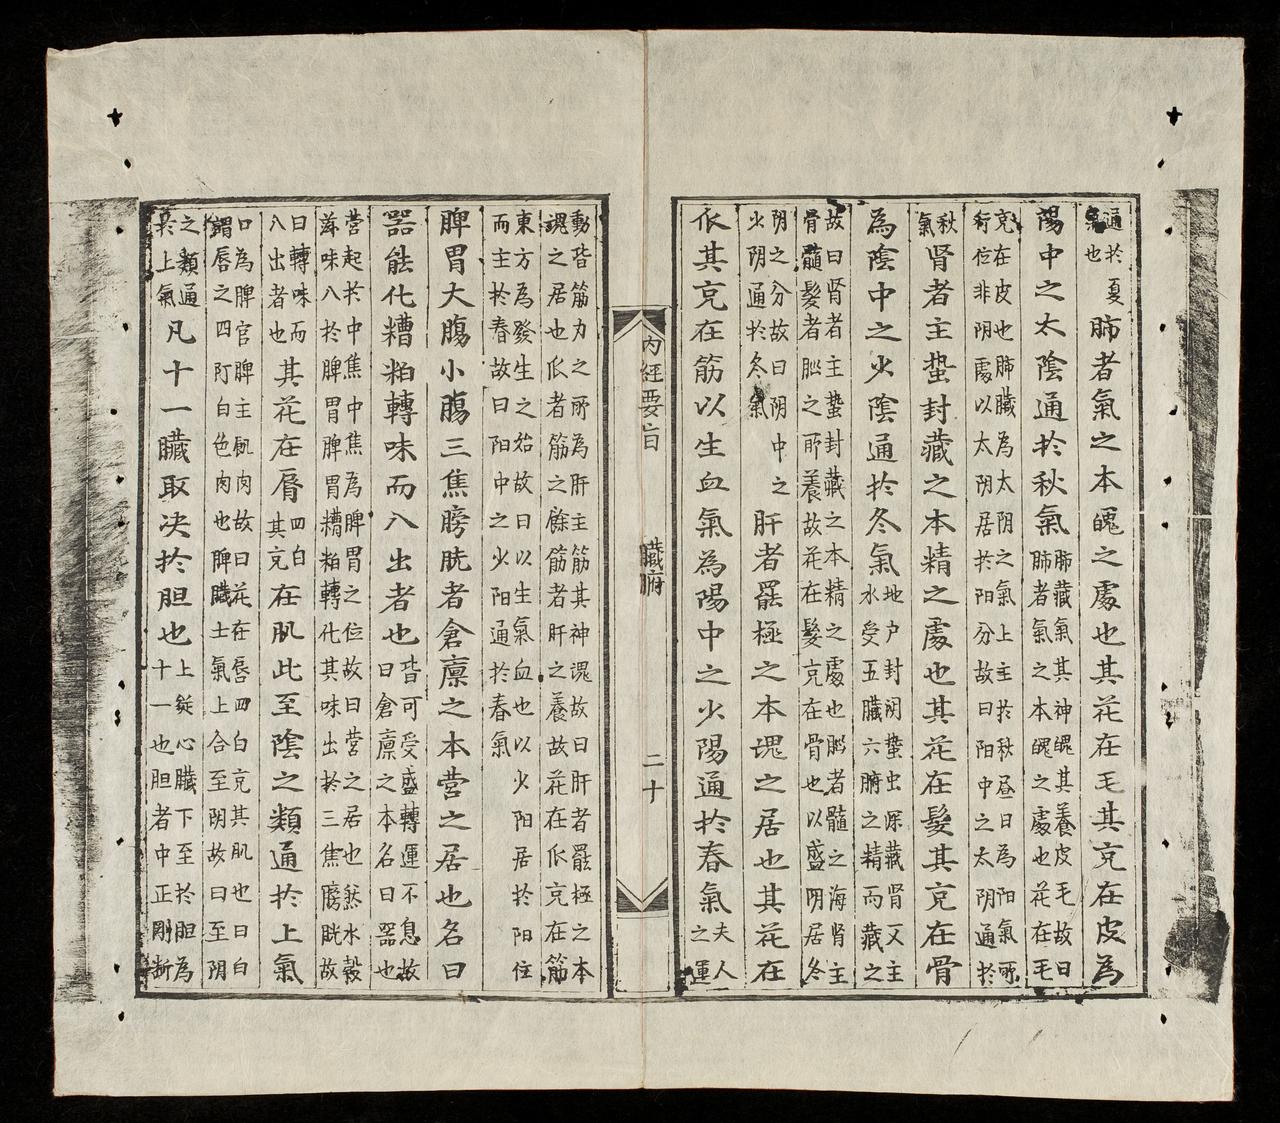 通於夏
氣也
肺者氣之本魄之處也其花在毛其克在皮為
陽中之太陰通於秋氣
肺藏氣其神魄其養皮毛故曰
肺者氣之本魄之處也花在毛
克在皮也肺臟為太阴之氣上主於秋昼日為阳氣所
行位非阴處以太阴居於阳分故曰阳中之太阴通於
秋
氣
肾者主蛰封藏之本精之處也其花在髮其克在骨
為陰中之少陰通於冬氣
地户封闭蛰虫深藏肾又主
水受五臟六腑之精而藏之
故曰肾者主蛰封藏之本精之處也脳者髓之海肾主
骨髓髮者脳之所養故花在髮克在骨也以盛阴居冬
阴之分故曰阴中之
少阴通於冬氣
肝者罷極之本魂之居也其花在
爪其克在筋以生血氣為陽中之少陽通於春氣
夫人
之運
動皆筋力之所為肝主筋其神魂故曰肝者罷極之本
魂之居也爪者筋之餘筋者肝之養故花在爪克在筋
東方為發生之始故曰以生氣血也以少阳居於阳位
而主於春故曰阳中之少阳通於春氣
脾胃大膓小膓三焦膀胱者倉廪之本营之居也名曰
器能化糟粕轉味而入出者也
皆可受盛轉運不息故
曰倉廪之本名曰器也
营起於中焦中焦為脾胃之位故曰营之居也然水穀
滋味入於脾胃脾胃糟粕轉化其味出於三焦膀胱故
曰轉味而
入出者也
其花在唇
四白
其克
在肌此至陰之類通於上氣
口為脾官脾主肌肉故曰花在唇四白克其肌也曰白
謂唇之四际白色肉也脾臟土氣上合至阴故曰至阴
之類通
於上氣
凡十一臟取决於胆也
上從心臟下至於胆為
十一也胆者中正剛断
内經要旨
臟腑
二十